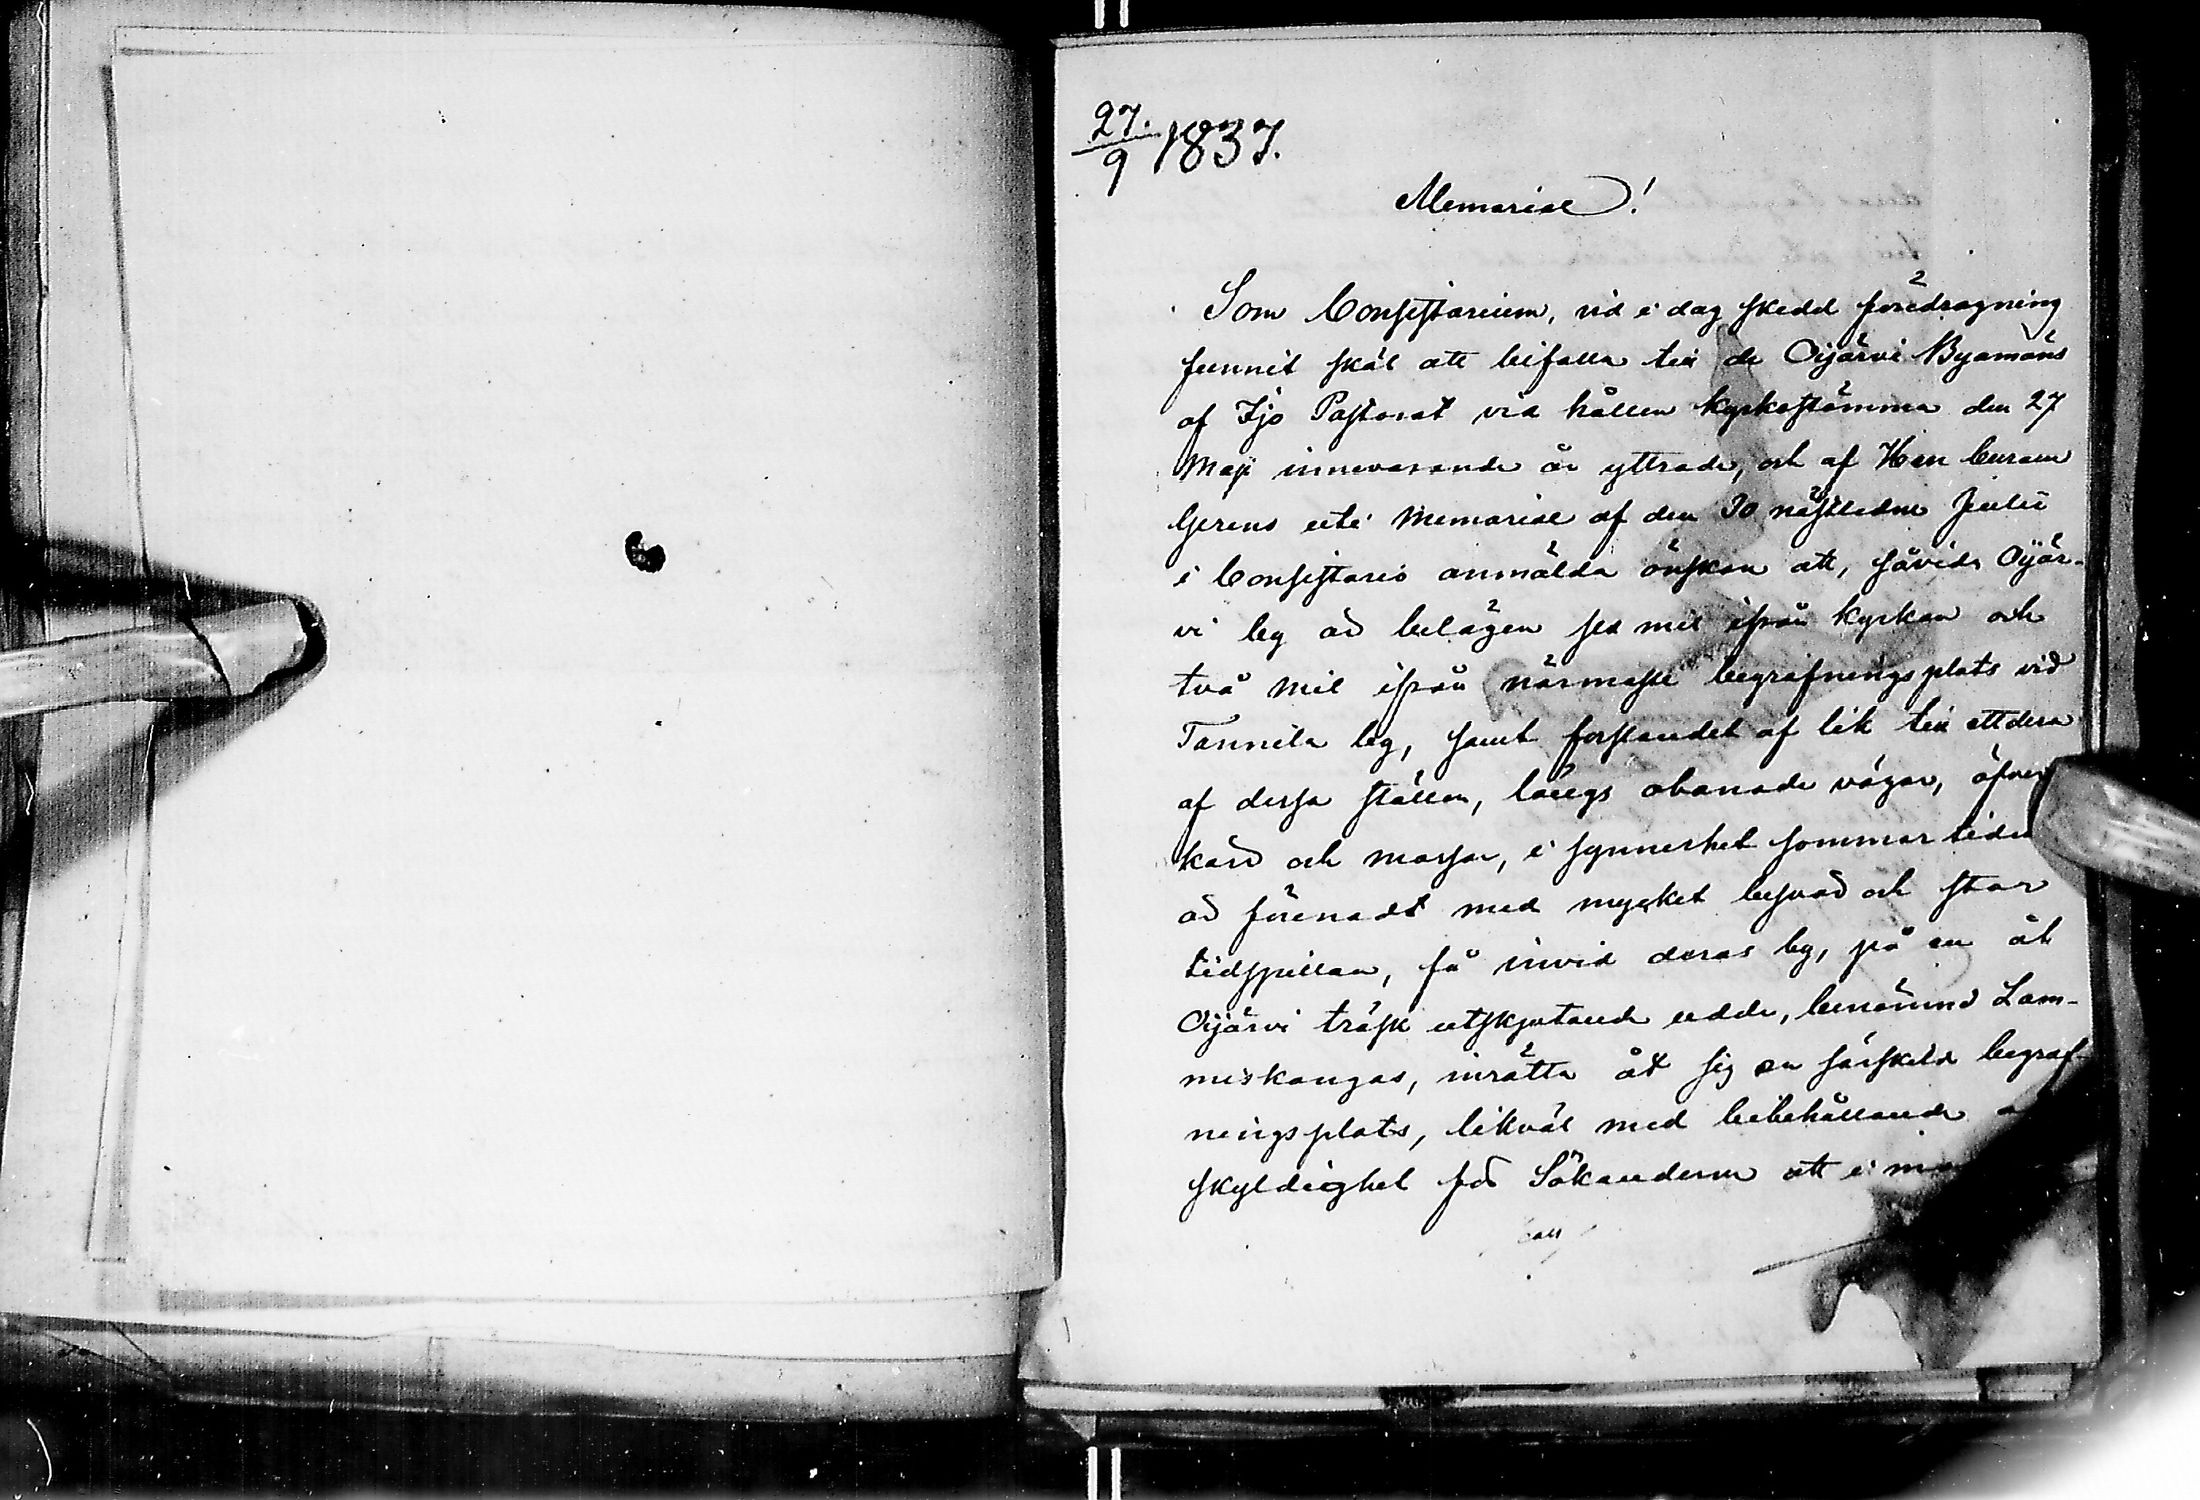 27/9 1837.
Memorial!
Som Consistorium, vid i dag skedd föredragning
funnit skäl att bifalla till de Oijärvi Byamäns
af Ijo Pastorat vid hållen kyrkostämma den 27
Maji innevarande år yttrade, och af Herr Curam
Gerens uti Memorial af den 30 nästledne Julii
i Consistorio anmälda önskan att, såvida Oijär-
vi by är belägen sex mil ifrån kyrkan och
två mil ifrån närmaste begrafningsplats vid
Tannila by, samt forslandet af lik till ettdera
af dessa ställen, längs obanade vägar, öfver
kärr och mossar, i synnerhet sommar tiden
är förenadt med mycket besvär och stor
tidspillan, få invid deras by, på en åt
Oijärvi träsk utskjutande udde, benämnd Lam-
miskangas, inrätta åt sig en särskild begraf-
ningsplats, likväl med bibehållande
skyldighet för Sökanderne att i